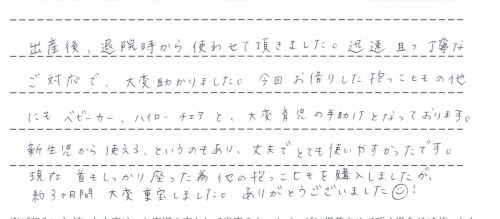 出産後、退院時から使わせて頂きました。迅速且つ丁寧な
ご対応で、大変助かりました。今回お借りした抱っこひもの他
にもベビーカー、ハイローチェアと、大変育児の手助けとなっております。
新生児から使える、というのもあり、丈夫でとても使いやすかったです。
現在 首もしっかり座った為 他の抱っこひもを購入しましたが、
約3ヶ月間 大変重宝しました。ありがとうございました☺!